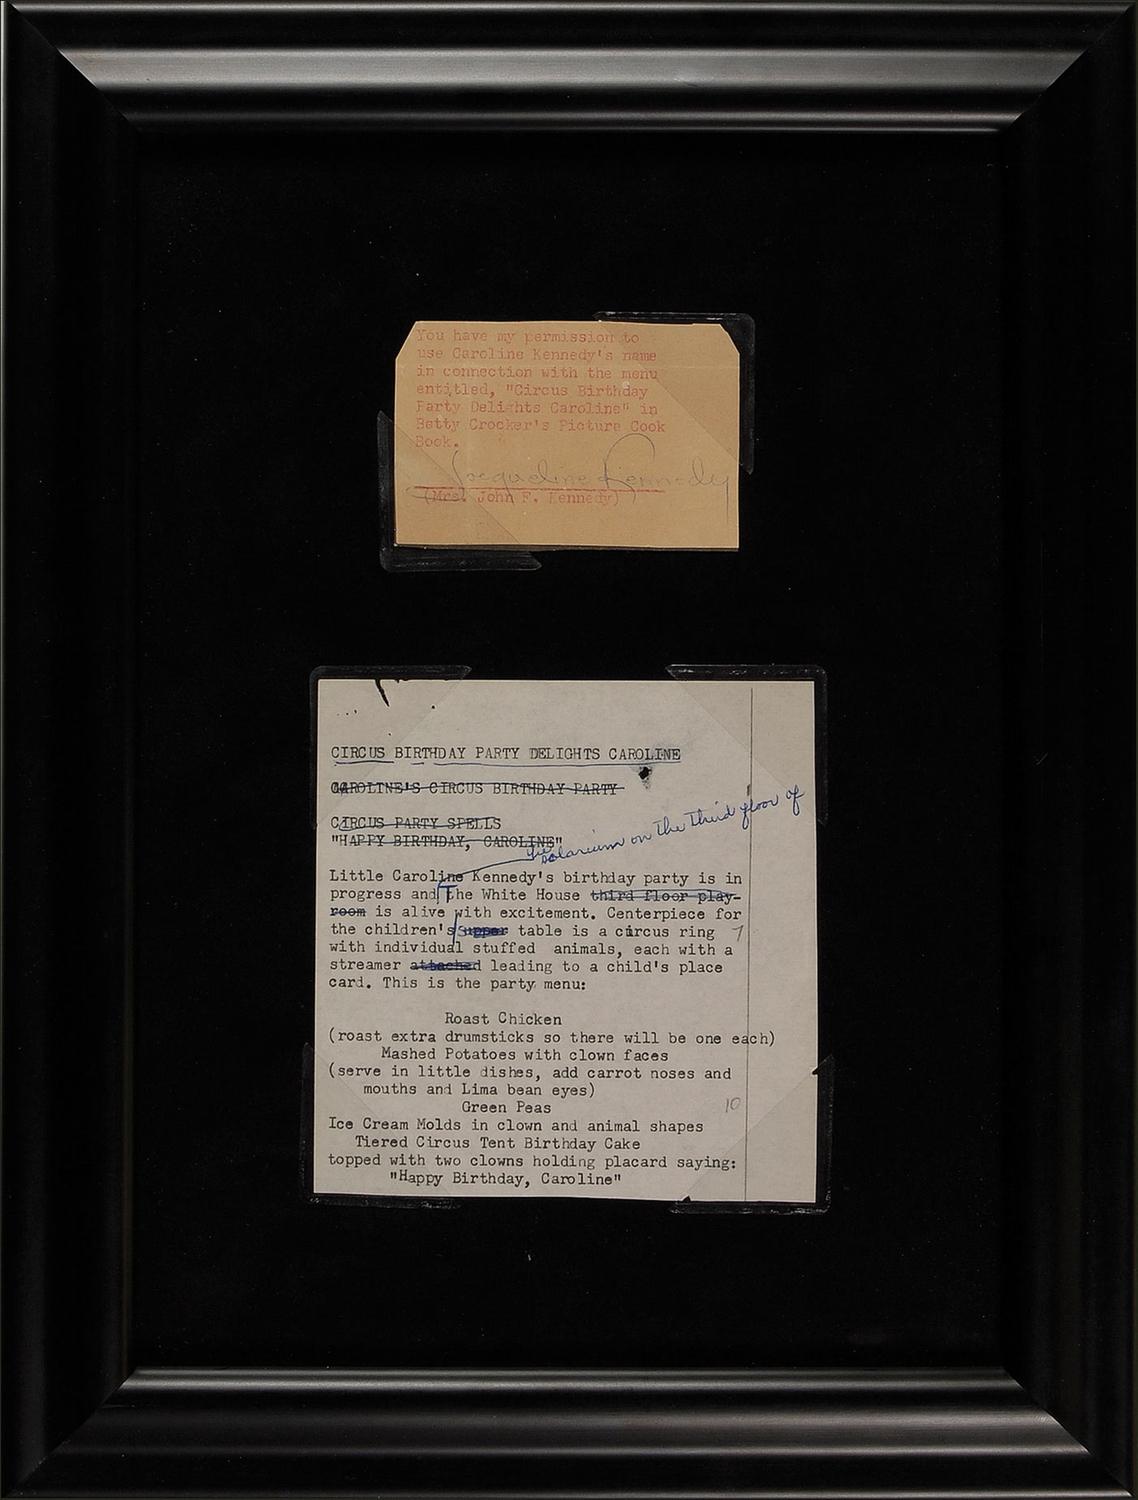 You have my permission to
use Caroline Kennedy's name
in connection with the menu
entitled, "Circus Birthday
Party Delights Caroline" in
Betty Crocker's Picture Cook
Book.
Jacqueline Kennedy
(Mrs. John F. Kennedy)
CIRCUS BIRTHDAY PARTY DELIGHTS CAROLINE
CAROLINE'S CIRCUS BIRTHDAY PARTY
CIRCUS PARTY SPELLS
"HAPPY BIRTHDAY, CAROLINE"
the solarium on the third floor of
Little Caroline Kennedy's birthday party is in
progress and the White House third floor play-
room is alive with excitement. Centerpiece for
the children's supper table is a circus ring 7
with individual stuffed animals, each with a
streamer attached leading to a child's place
card. This is the party menu:
Roast Chicken
(roast extra drumsticks so there will be one each)
Mashed Potatoes with clown faces
(serve in little dishes, add carrot noses and
mouths and Lima bean eyes)
Green Peas 10
Ice Cream Molds in clown and animal shapes
Tiered Circus Tent Birthday Cake
topped with two clowns holding placard saying:
"Happy Birthday, Caroline"